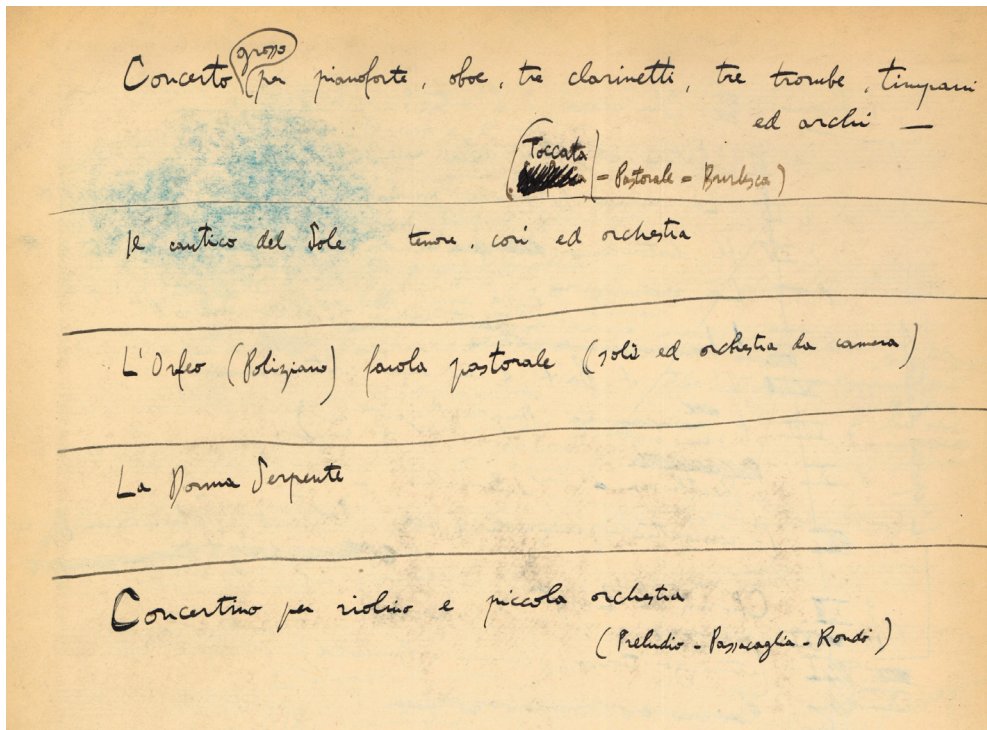 Concerto grosso per pianoforte, oboe, tre clarinetti, tre trombe, timpani
ed archi —
(Toccata
= Pastorale = Burlesca)
Il cantico del Sole tenore, cori ed orchestra
L'Orfeo (Poliziano) favola pastorale (soli ed orchestra da camera)
La Donna Serpente
Concertino per violino e piccola orchestra
(Preludio - Passacaglia - Rondò)